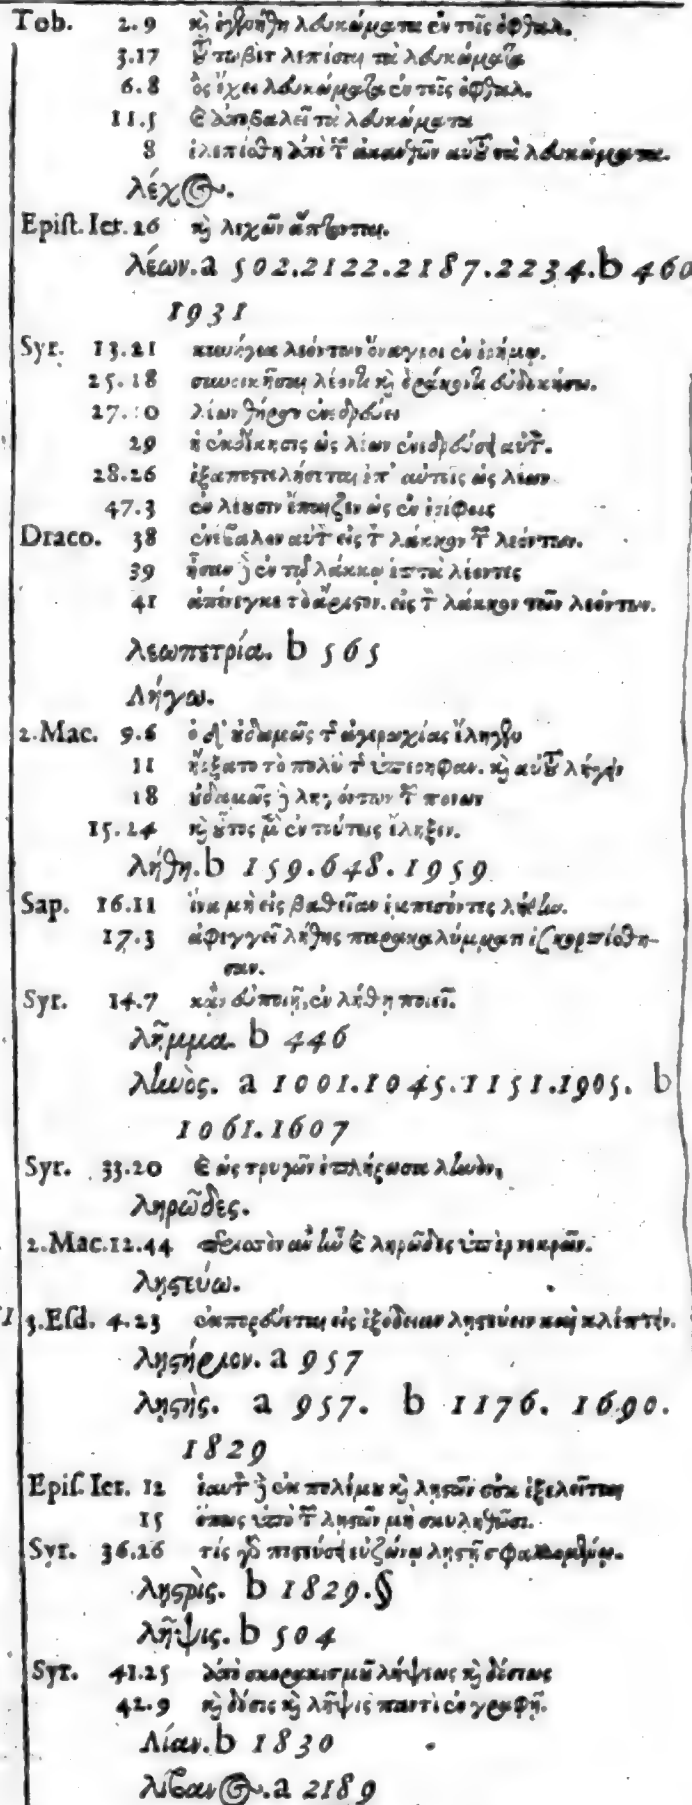 Tob. 2.9 καὶ ἐγενήθη λευκώματα ἐν τοῖς ὀφθαλ.
3.17 τοῦ τωβὶτ λεπίσαι τὰ λευκώματα
6.8 ὃς ἔχει λευκώματα ἐν τοῖς ὀφθαλ.
11.5 καὶ ἀποβαλεῖ τὰ λευκώματα
8 ἐλεπίσθη ἀπὸ τῶν κανθῶν αὐτοῦ τὰ λευκώματα.
λέχος.
Epist. Ier. 26 καὶ λεχῶν ἅπτονται.
λέων. a 502.2122.2187.2234. b 460
1931
Syr. 13.21 κυνήγια λεόντων ὄναγροι ἐν ἐρήμῳ.
25.18 συνοικῆσαι λέοντι καὶ δράκοντι εὐδοκήσω.
27.10 λέων θήραν ἐνεδρεύει
29 ἡ ἐκδίκησις ὡς λέων ἐνεδρεύσει αὐτὸν.
28.26 ἐξαποσταλήσεται ἐπ' αὐτοῖς ὡς λέων
47.3 ἐν λέουσιν ἔπαιζεν ὡς ἐν ἐρίφοις
Draco. 38 ἐνέβαλον αὐτὸν εἰς τὸν λάκκον τῶν λεόντων.
39 ἦσαν δὲ ἐν τῷ λάκκῳ ἑπτὰ λέοντες
41 ἀπένεγκε τὸ ἄριστον. εἰς τὸν λάκκον τῶν λεόντων.
λεωπετρία. b 565
Λήγω.
2.Mac. 9.6 ὁ δ' οὐδαμῶς τῆς ἀγερωχίας ἔληγεν
11 ἤρξατο τὸ πολὺ τῆς ὑπερηφαν. καὶ αὐτοῦ λήγειν
18 οὐδαμῶς δὲ ληγόντων τῶν πόνων
15.24 καὶ οὗτος μὲν ἐν τούτοις ἔληξεν.
λήθη. b 159.648.1959
Sap. 16.11 ἵνα μὴ εἰς βαθεῖαν ἐμπεσόντες λήθην.
17.3 ἀφεγγεῖ λήθης παρακαλύμματι ἐσκορπίσθη-
σαν.
Syr. 14.7 κἂν εὐποιῇ, ἐν λήθῃ ποιεῖ.
λῆμμα. b 446
ληνὸς. a 1001.1045.1151.1905. b
1061.1607
Syr. 33.20 καὶ ὡς τρυγῶν ἐπλήρωσα ληνὸν,
ληρῶδες.
2.Mac. 12.44 περισσὸν ἂν ἦν καὶ ληρῶδες ὑπὲρ νεκρῶν.
ληστεύω.
3.Esd. 4.23 ἐκπορεύεται εἰς ἐξοδείαν ληστεύειν καὶ κλέπτειν.
ληστήριον. a 957
ληστὴς. a 957. b 1176. 1690.
1829
Epis. Ier. 12 ἑαυτὸν δὲ ἐκ πολέμου καὶ λῃστῶν οὐκ ἐξελεῖται
15 ὅπως ὑπὸ τῶν λῃστῶν μὴ συληθῶσι.
Syr. 36.26 τίς γὰρ πιστεύσει εὐζώνῳ λῃστῇ σφαλλομένῳ.
λῃστρὶς. b 1829.§
λῆψις. b 504
Syr. 41.25 ἀπὸ σκορακισμοῦ λήψεως καὶ δόσεως
42.9 καὶ δόσις καὶ λῆψις παντὶ ἐν γραφῇ.
Λίαν. b 1830
λίβανος. a 2189